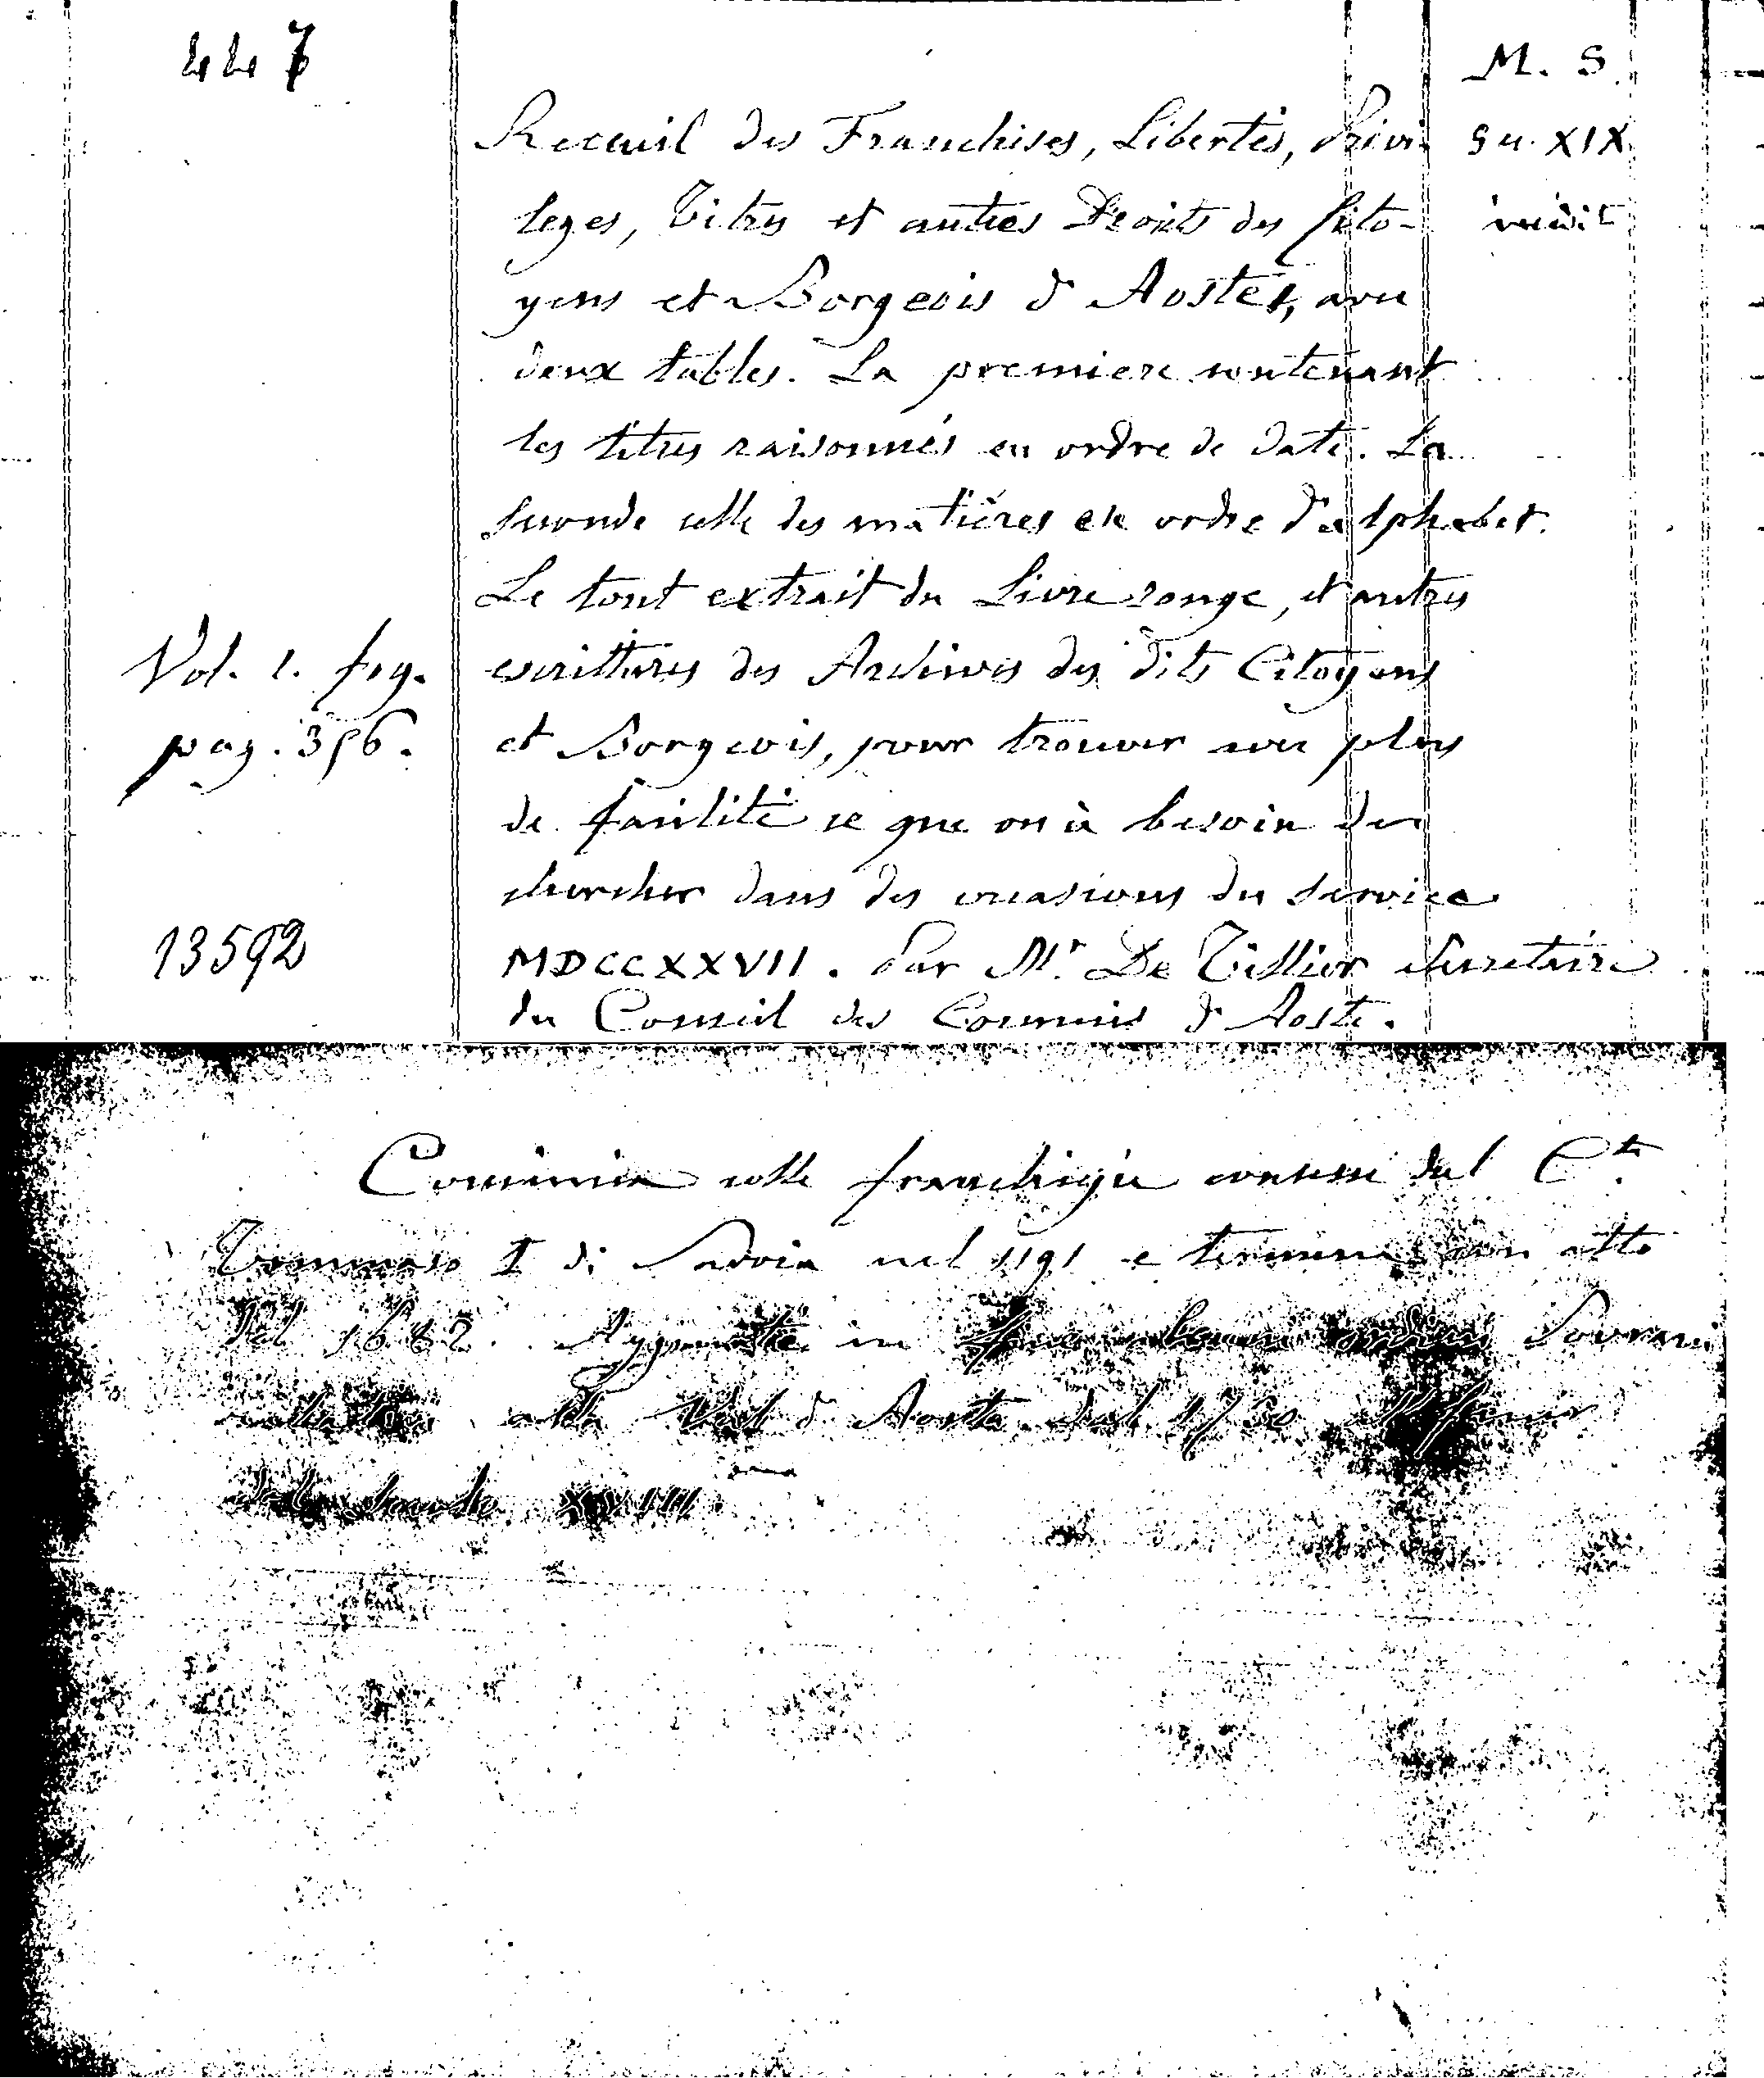 447
M. S.
Recueil des Franchises, Libertés, Privi-
Su. XIX
leges, Titres et autres Droits des Cito-
inédit
yens et Borgeois d'Aoste, avec
deux tables. La premiere contenant
les titres raisonnés en ordre de date. La
seconde celle des matières en ordre d'alphabet.
Le tout extrait du Livre rouge, et autres
Vol. 1. fog.
escrittures des Archives des dits Citoyens
pag. 356.
et Borgeois, pour trouver avec plus
de facilité ce que on à besoin de
chercher dans des occasions du service
13592
MDCCXXVII. Par Mr. De Tillier Secretaire
du Conseil des Commis d'Aoste.
Comincia colle franchigie concesse dal Cte.
Tommaso I di Savoia nel 1191 e termina con atto
del 1682. Aggiunte in fine ordini Sovrani
alla Val d'Aosta dal 1730
dello secolo XVIII.